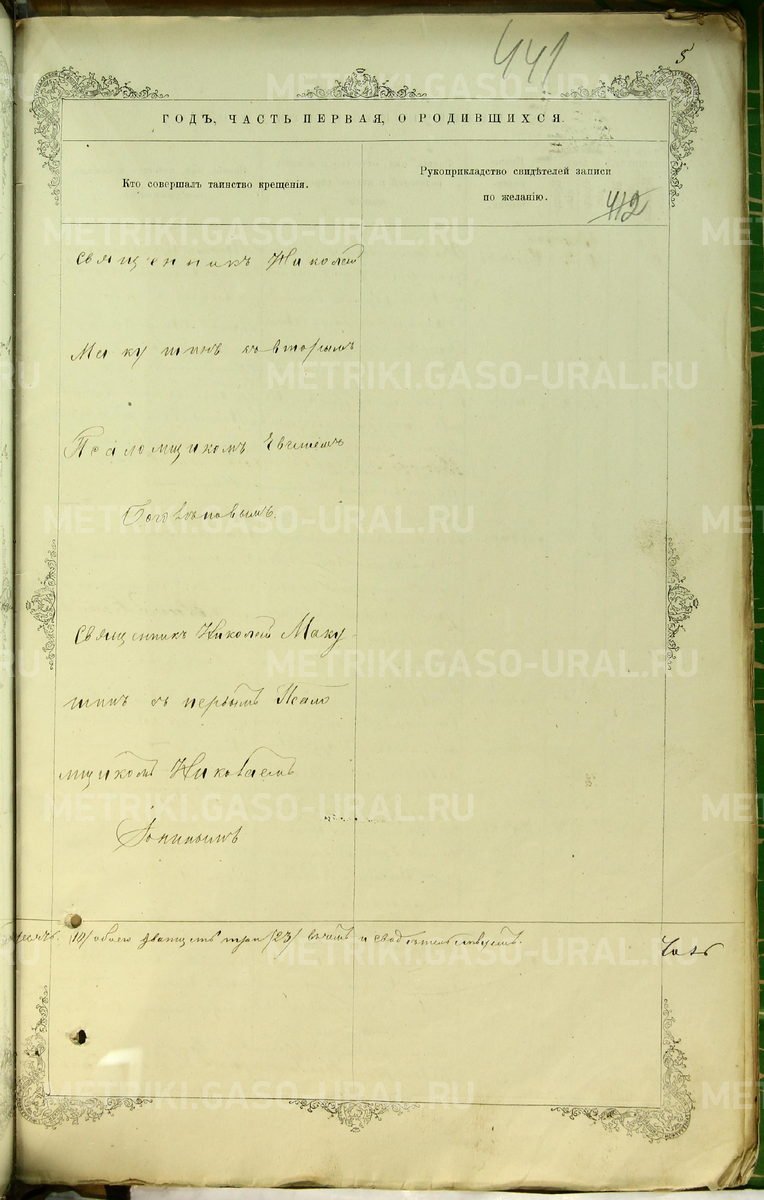 441
5
ГОДЪ, ЧАСТЬ ПЕРВАЯ, О РОДИВШИХСЯ.
Кто совершалъ таинство крещенія.
Рукоприкладство свидѣтелей записи
по желанію.
412
Священникъ Николай
Макушинъ со вторымъ
Псаломщикомъ
Священникъ Николай Маку
шинъ съ первымъ Псало
мщикомъ Николаемъ
10/ обоего двадцать три /23/
METRIKI.GASO-URAL.RU